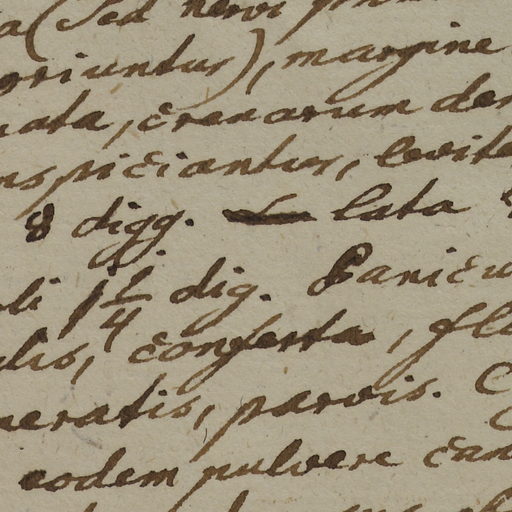 a (Sed nervi
oriuntur), margine
nata, crenarum den
nspiciantur, levite
8 digg. lata
li 1 1/4 dig. Panicu
lis, conferta, flo
neratis, parvis. C
eodem pulvere can